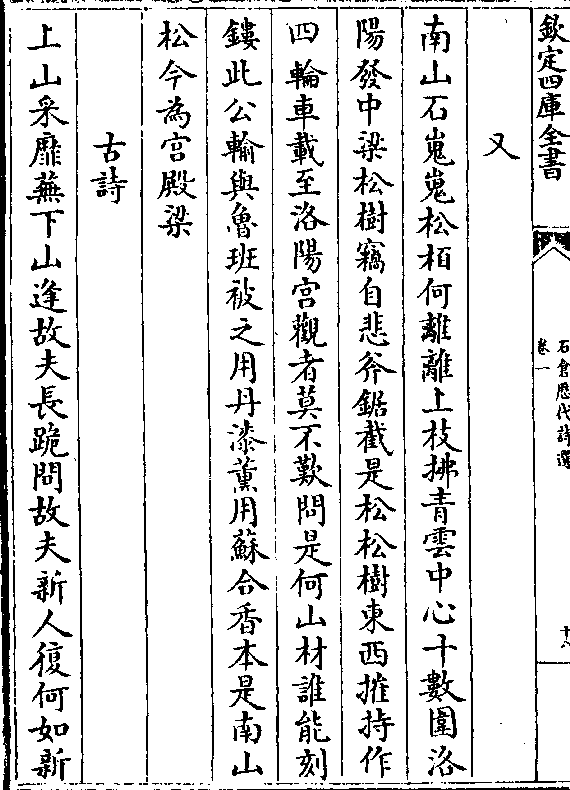 欽定四庫全書
石倉歷代詩選
卷一
十八
又
南山石嵬嵬松栢何離離上枝拂青雲中心十數圍洛
陽發中梁松樹竊自悲斧鋸截是松松樹東西摧持作
四輪車載至洛陽宫觀者莫不歎問是何山材誰能刻
鏤此公輸與魯班被之用丹漆薫用蘇合香本是南山
松今為宫殿梁
古詩
上山采蘼蕪下山逢故夫長跪問故夫新人復何如新